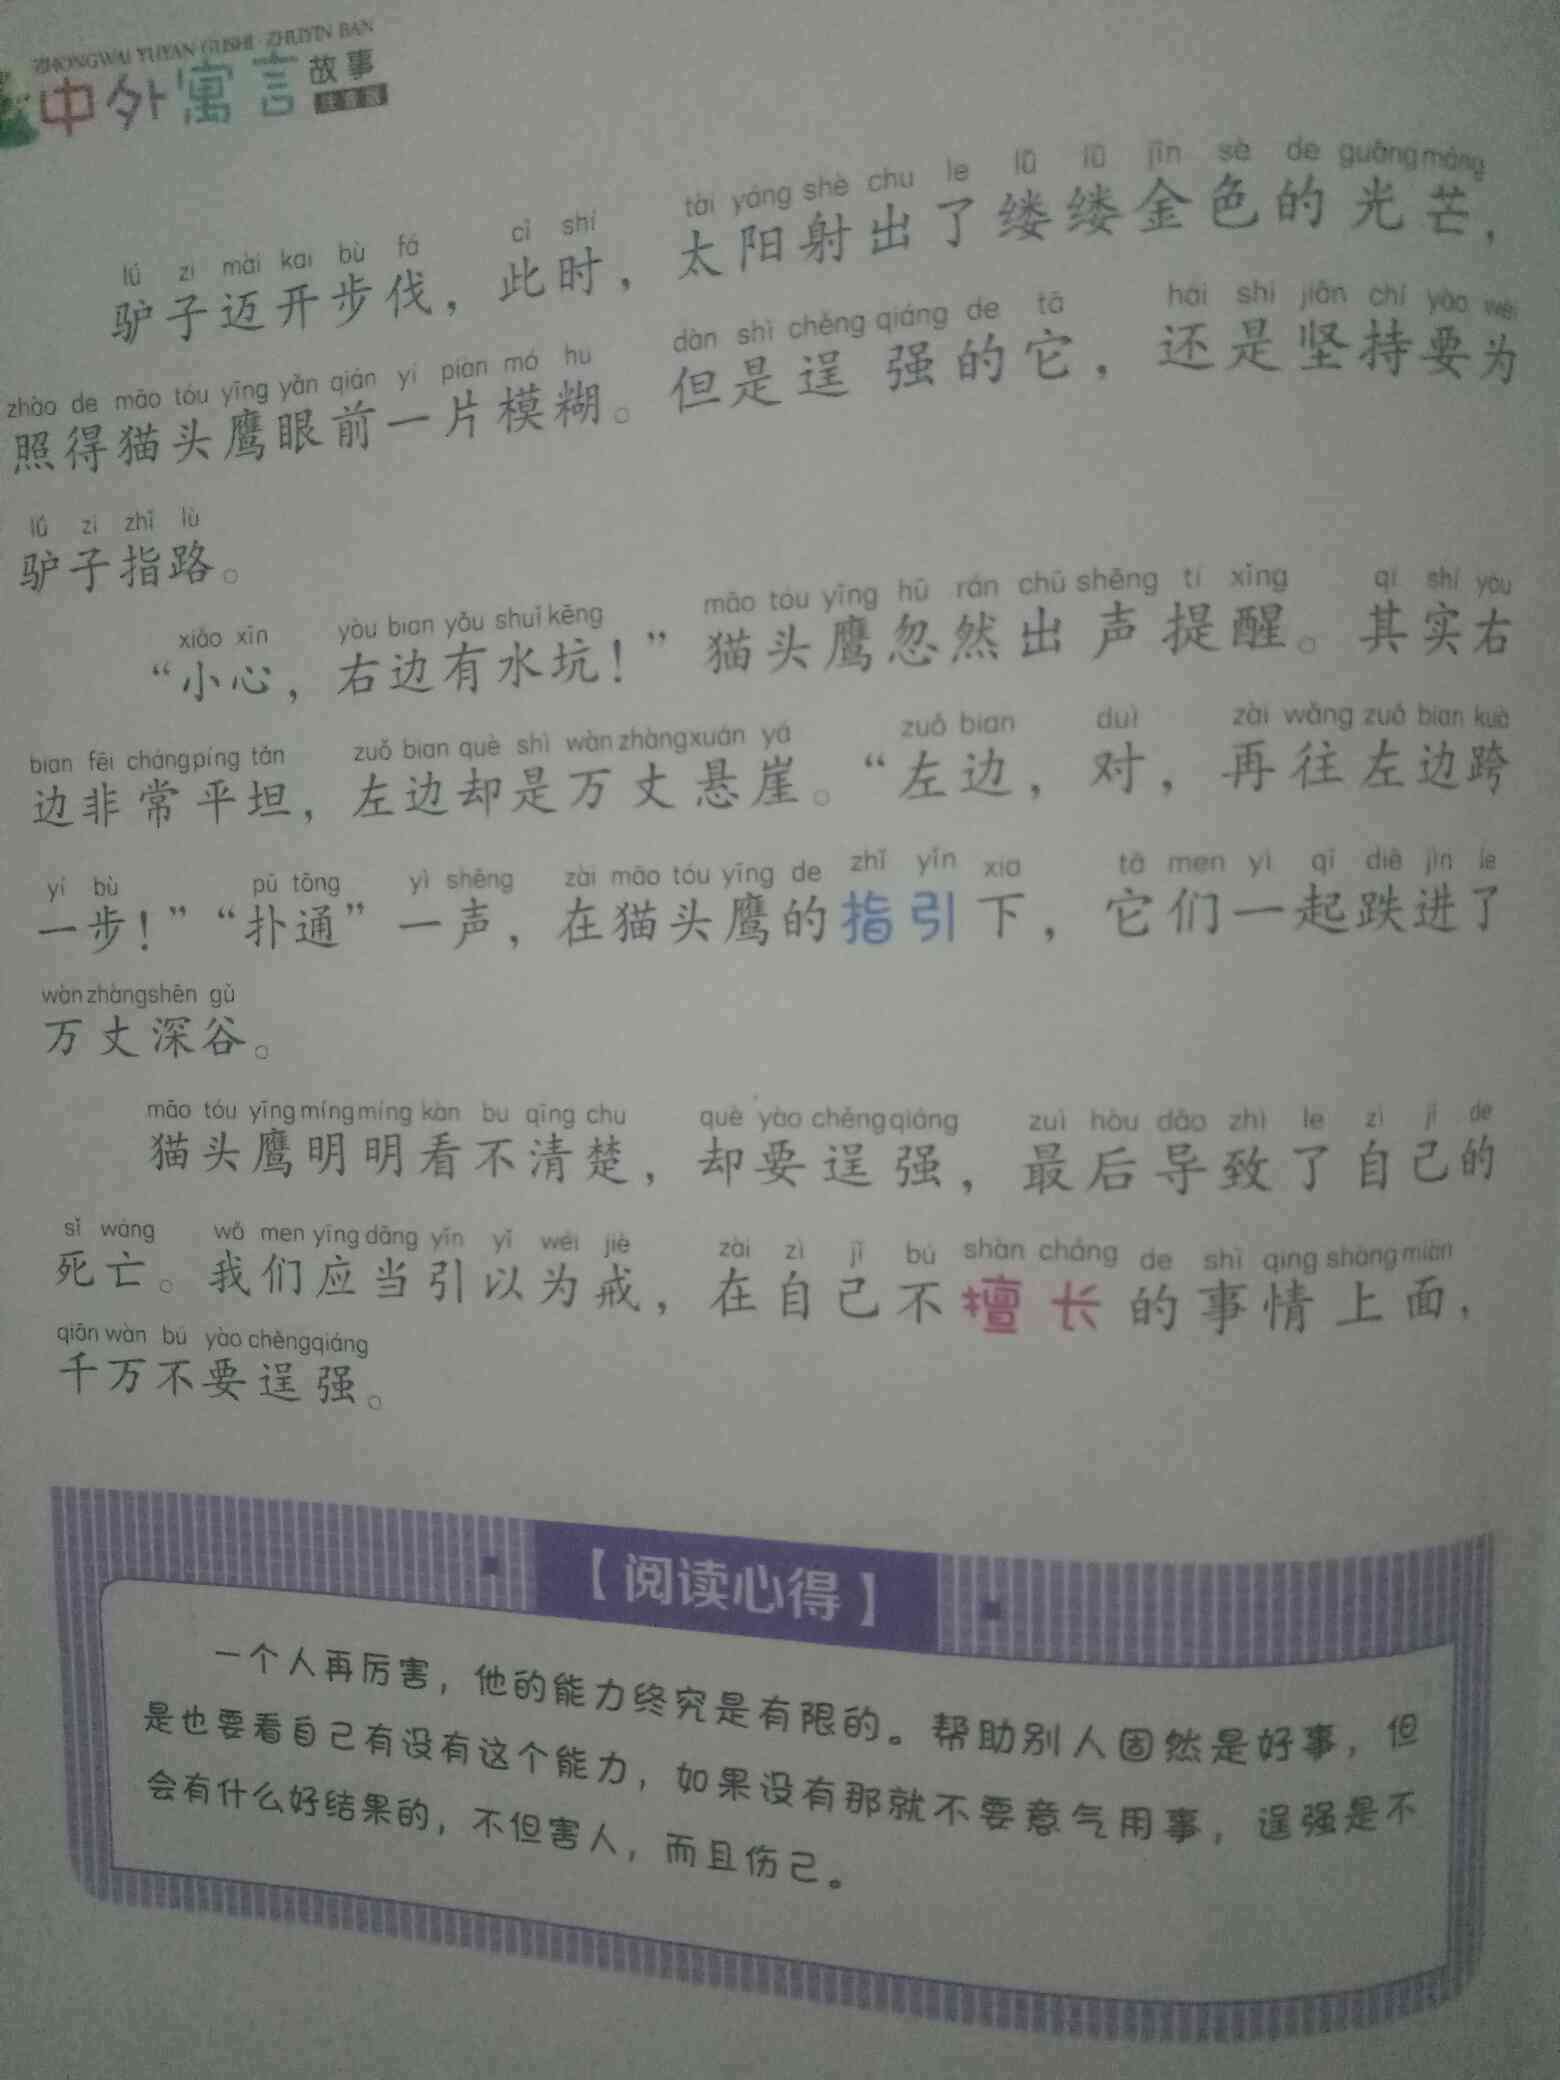 ZHONGWAI YUYAN GUSHI · ZHUYIN BAN
中外寓言故事
注音版
lǘ zi mài kāi bù fá cǐ shí tài yáng shè chū le lǚ lǚ jīn sè de guāng máng
驴子迈开步伐，此时，太阳射出了缕缕金色的光芒，
zhào de māo tóu yīng yǎn qián yí piàn mó hu dàn shì chěng qiáng de tā hái shi jiān chí yào wèi
照得猫头鹰眼前一片模糊。但是逞强的它，还是坚持要为
lǘ zi zhǐ lù
驴子指路。
xiǎo xīn yòu bian yǒu shuǐ kēng māo tóu yīng hū rán chū shēng tí xǐng qí shí yòu
“小心，右边有水坑！”猫头鹰忽然出声提醒。其实右
bian fēi cháng píng tǎn zuǒ bian què shì wàn zhàng xuán yá zuǒ bian duì zài wǎng zuǒ bian kuà
边非常平坦，左边却是万丈悬崖。“左边，对，再往左边跨
yí bù pū tōng yì shēng zài māo tóu yīng de zhǐ yǐn xia tā men yì qǐ diē jìn le
一步！”“扑通”一声，在猫头鹰的指引下，它们一起跌进了
wàn zhàng shēn gǔ
万丈深谷。
māo tóu yīng míng míng kàn bu qīng chu què yào chěng qiáng zuì hòu dǎo zhì le zì jǐ de
猫头鹰明明看不清楚，却要逞强，最后导致了自己的
sǐ wáng wǒ men yīng dāng yǐn yǐ wéi jiè zài zì jǐ bú shàn cháng de shì qing shàng miàn
死亡。我们应当引以为戒，在自己不擅长的事情上面，
qiān wàn bú yào chěng qiáng
千万不要逞强。
【阅读心得】
一个人再厉害，他的能力终究是有限的。帮助别人固然是好事，但
是也要看自己有没有这个能力，如果没有那就不要意气用事，逞强是不
会有什么好结果的，不但害人，而且伤己。